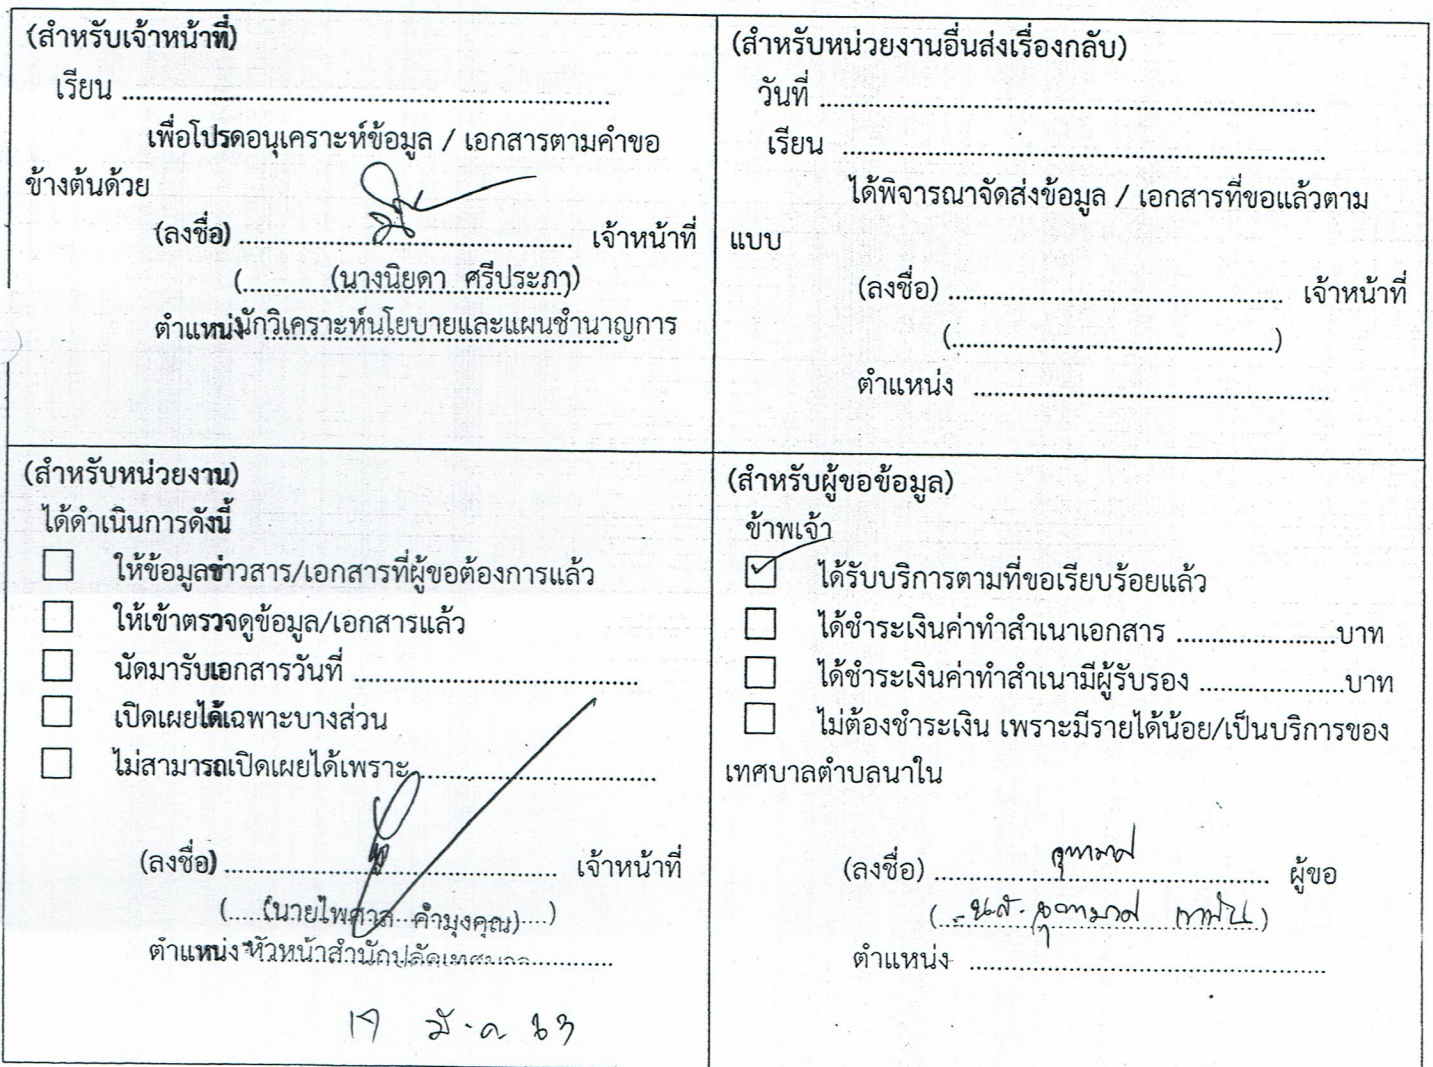 (สำหรับเจ้าหน้าที่)
เรียน ............................................................
เพื่อโปรดอนุเคราะห์ข้อมูล / เอกสารตามคำขอ
ข้างต้นด้วย
(ลงชื่อ) ........................................ เจ้าหน้าที่
(นางนิยดา ศรีประภา)
ตำแหน่ง นักวิเคราะห์นโยบายและแผนชำนาญการ
(สำหรับหน่วยงานอื่นส่งเรื่องกลับ)
วันที่ ............................................................
เรียน ............................................................
ได้พิจารณาจัดส่งข้อมูล / เอกสารที่ขอแล้วตาม
แบบ
(ลงชื่อ) ........................................ เจ้าหน้าที่
(........................................)
ตำแหน่ง ............................................
(สำหรับหน่วยงาน)
ได้ดำเนินการดังนี้
ให้ข้อมูลข่าวสาร/เอกสารที่ผู้ขอต้องการแล้ว
ให้เข้าตรวจดูข้อมูล/เอกสารแล้ว
นัดมารับเอกสารวันที่ ....................................
เปิดเผยได้เฉพาะบางส่วน
ไม่สามารถเปิดเผยได้เพราะ..............................
(ลงชื่อ) ........................................ เจ้าหน้าที่
(นายไพศาล คำมุงคุณ)
ตำแหน่ง หัวหน้าสำนักปลัดเทศบาล
19 มี.ค. 63
(สำหรับผู้ขอข้อมูล)
ข้าพเจ้า
ได้รับบริการตามที่ขอเรียบร้อยแล้ว
ได้ชำระเงินค่าทำสำเนาเอกสาร ....................บาท
ได้ชำระเงินค่าทำสำเนามีผู้รับรอง ..................บาท
ไม่ต้องชำระเงิน เพราะมีรายได้น้อย/เป็นบริการของ
เทศบาลตำบลนาใน
(ลงชื่อ) ........................................ ผู้ขอ
(น.ส. )
ตำแหน่ง ............................................